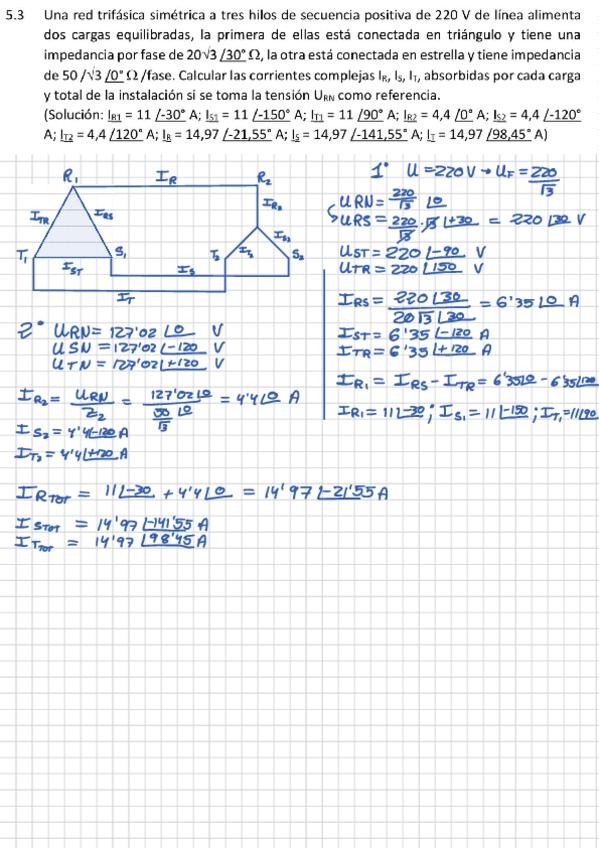 5.3 Una red trifásica simétrica a tres hilos de secuencia positiva de 220 V de línea alimenta
dos cargas equilibradas, la primera de ellas está conectada en triángulo y tiene una
impedancia por fase de 20√3 /30° Ω, la otra está conectada en estrella y tiene impedancia
de 50 /√3 /0° Ω /fase. Calcular las corrientes complejas IR, IS, IT, absorbidas por cada carga
y total de la instalación si se toma la tensión URN como referencia.
(Solución: IR1 = 11 /-30° A; IS1 = 11 /-150° A; IT1 = 11 /90° A; IR2 = 4,4 /0° A; IS2 = 4,4 /-120°
A; IT2 = 4,4 /120° A; IR = 14,97 /-21,55° A; IS = 14,97 /-141,55° A; IT = 14,97 /98,45° A)
R1 IR R2
ITR IRS IR2
T1 S1 IST T2 IT2 IS2 S2
IS
IT
1° U = 220 V → UF = 220/√3
URN = 220/√3 /0
URS = 220/√3 · √3 /+30 = 220 /30 V
UST = 220 /-90 V
UTR = 220 /150 V
IRS = 220 /30 / 20√3 /30 = 6'35 /0 A
IST = 6'35 /-120 A
ITR = 6'35 /+120 A
IR1 = IRS - ITR = 6'35/0 - 6'35/120
IR1 = 11 /-30 ; IS1 = 11 /-150 ; IT1 = 11/90
2° URN = 127'02 /0 V
USN = 127'02 /-120 V
UTN = 127'02 /+120 V
IR2 = URN/Z2 = 127'02 /0 / 50/√3 /0 = 4'4 /0 A
IS2 = 4'4/-120 A
IT2 = 4'4 /+120 A
IRTOT = 11 /-30 + 4'4 /0 = 14'97 /-21'55 A
ISTOT = 14'97 /-141'55 A
ITTOT = 14'97 /98'45 A